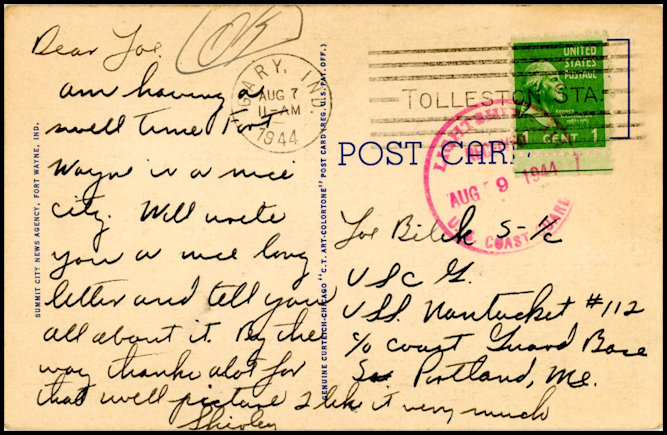 OK
Dear Joe.
am having a
swell time Fort
Wayne is a nice
city. Will write
you a nice long
letter and tell you
all about it. By the
way thanks alot for
that swell picture I like it very much
Shirley
SUMMIT CITY NEWS AGENCY, FORT WAYNE, IND.
GENUINE CURTEICH-CHICAGO "C.T. ART-COLORTONE" POST CARD (REG. U.S. PAT. OFF.)
GARY, IND
AUG 7
11-AM
1944
TOLLESTON STA.
UNITED
STATES
POSTAGE
GEORGE
WASHINGTON
1 CENT 1
POST CARD
LIGHTSHIP
AUG 9 1944
U.S. COAST GUARD
Joe Bilek S-1/c
USCG.
USS. Nantucket #112
c/o Coast Guard Base
So. Portland, Me.